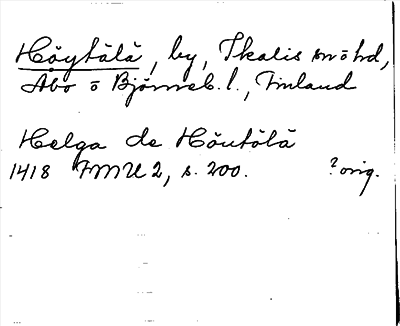 Höytölä, by, Ikalis sn o hd,
Åbo o Björneb. l., Finland
Helga de Höutölä
1418 FMU 2, s. 200. ? orig.